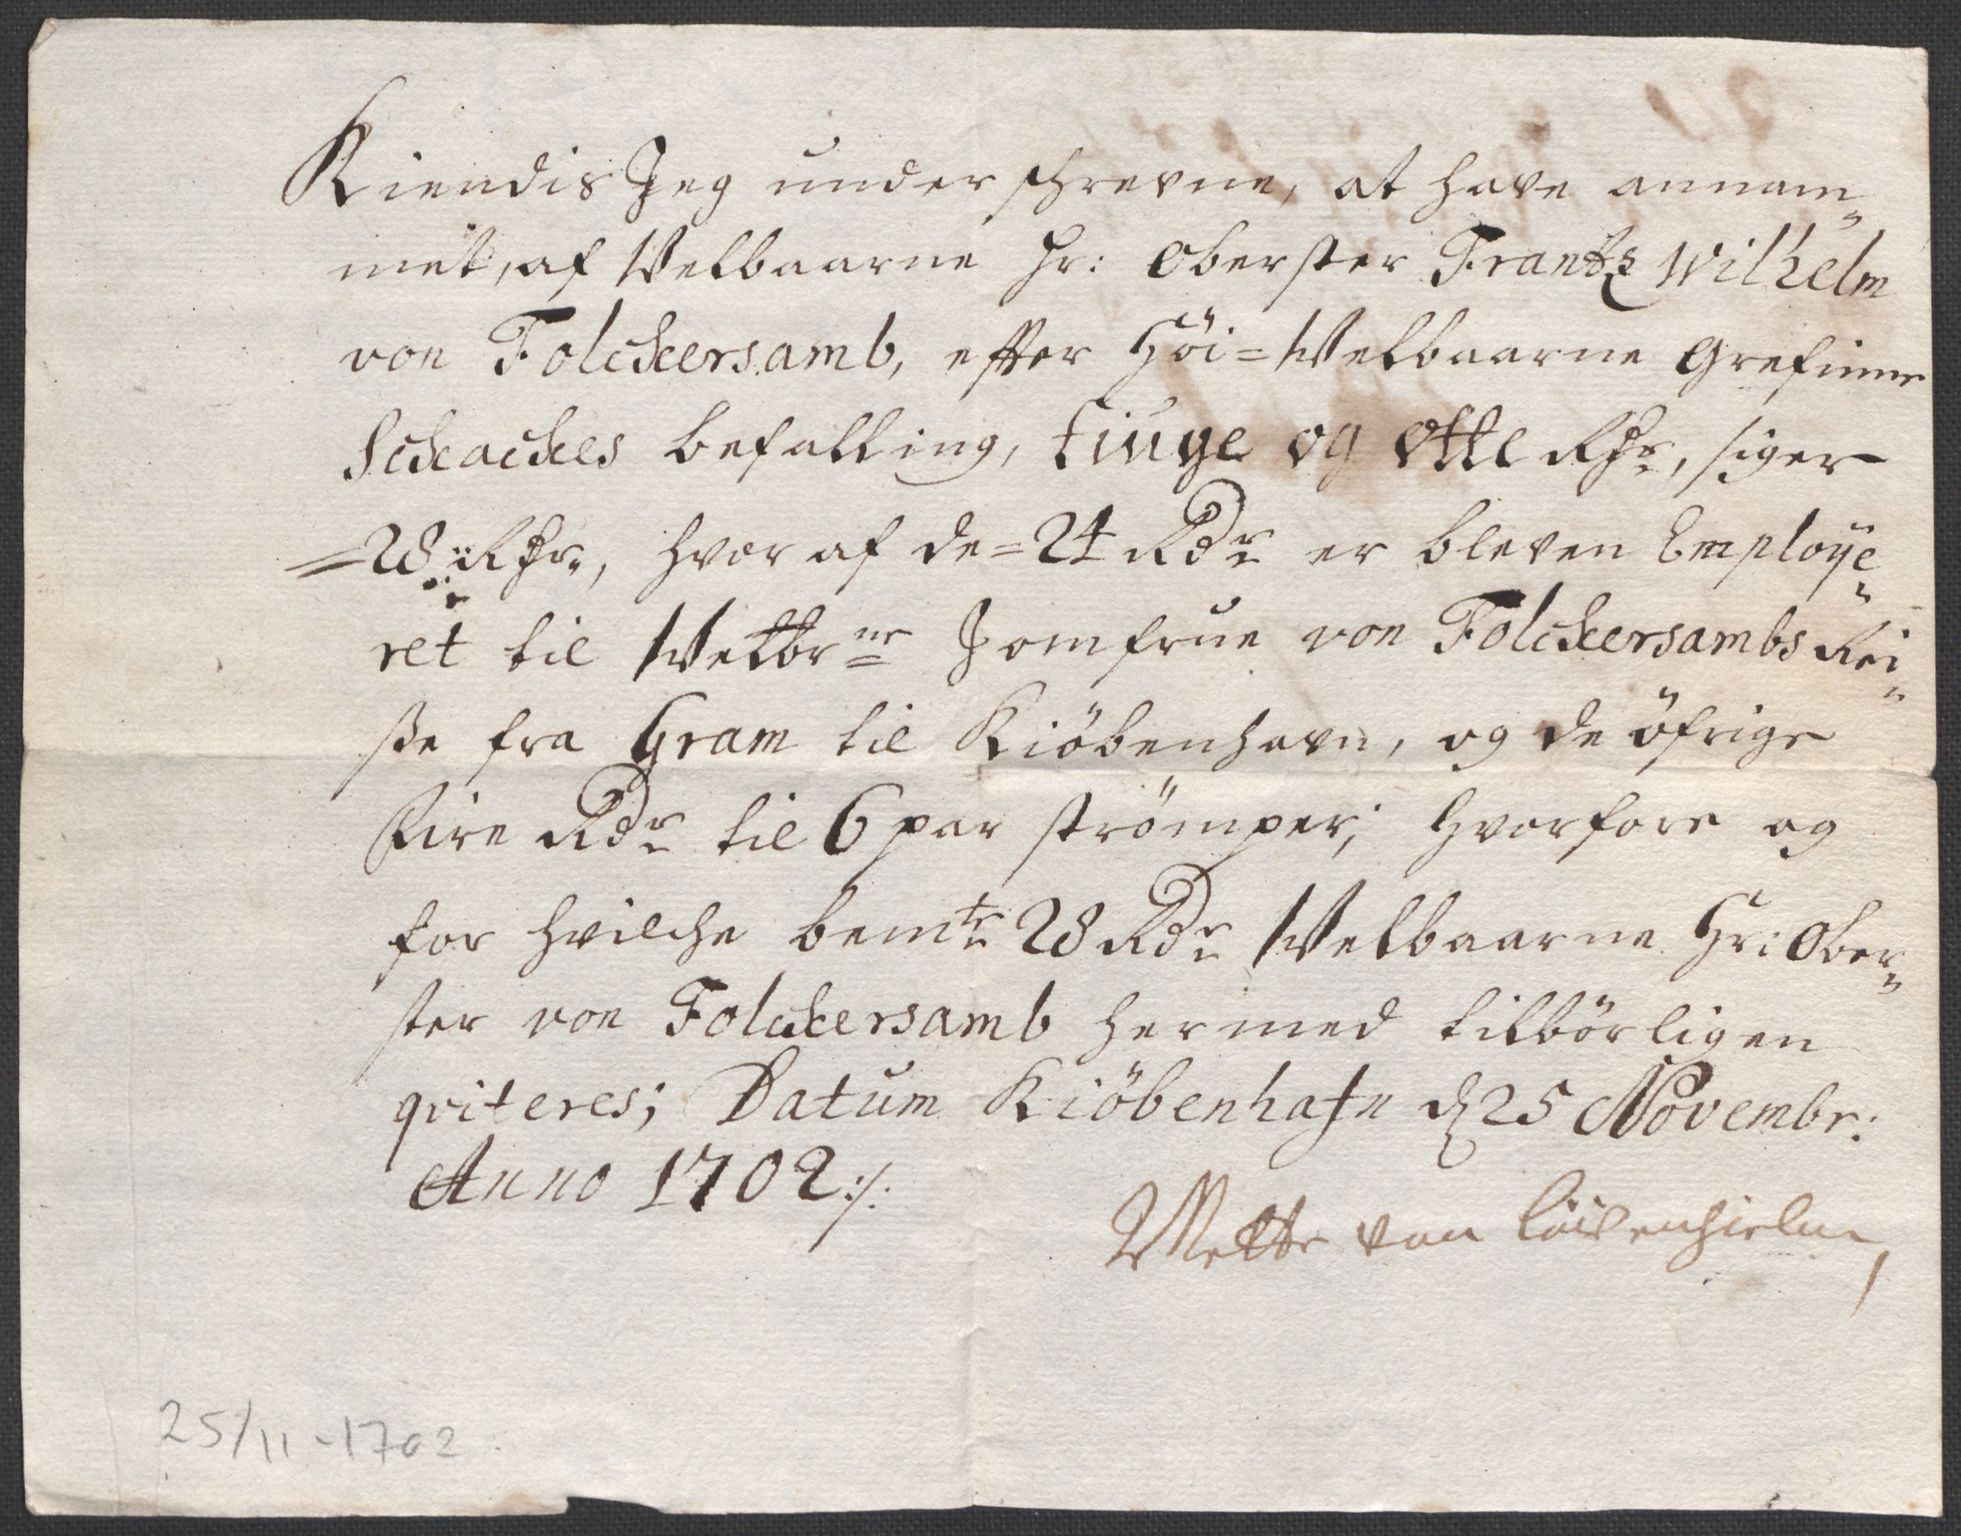 Kiendis Jeg underschrevne, at have annam„
met, af Velbaarne Hr: Oberster Frantz Wilhelm
von Folckersamb, effter Höi=Velbaarne Grefinne
Schackes befalling, tiuge og otte Rdr, siger
=28 Rdr, hvor af de=24 Rdr er bleven Employe„
ret til Velbr<sup>ne</sup> Jomfrue von Folckersambs Rei„
ße fra Gram til Kiöbenhavn, og de öfrige
Fire Rdr til 6 par strömper; hvorfore og
for hvilche bemte 28 Rdr Velbaarne Hr: Ober„
ster von Folckersamb hermed tilbörligen
qviteres; Datum Kiöbenhafn d 25 Novembr:
Anno 1702:/.
Mette von Löivenhielm
25/11-1702